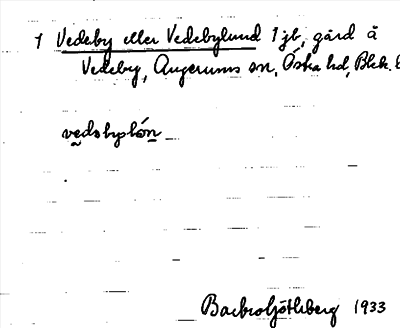 1 Vedeby eller Vedebylund 1 jb, gård å
Vedeby, Augerums sn, Östra hd, Blek. l
vedəbylón
Barbro Götlsberg 1933